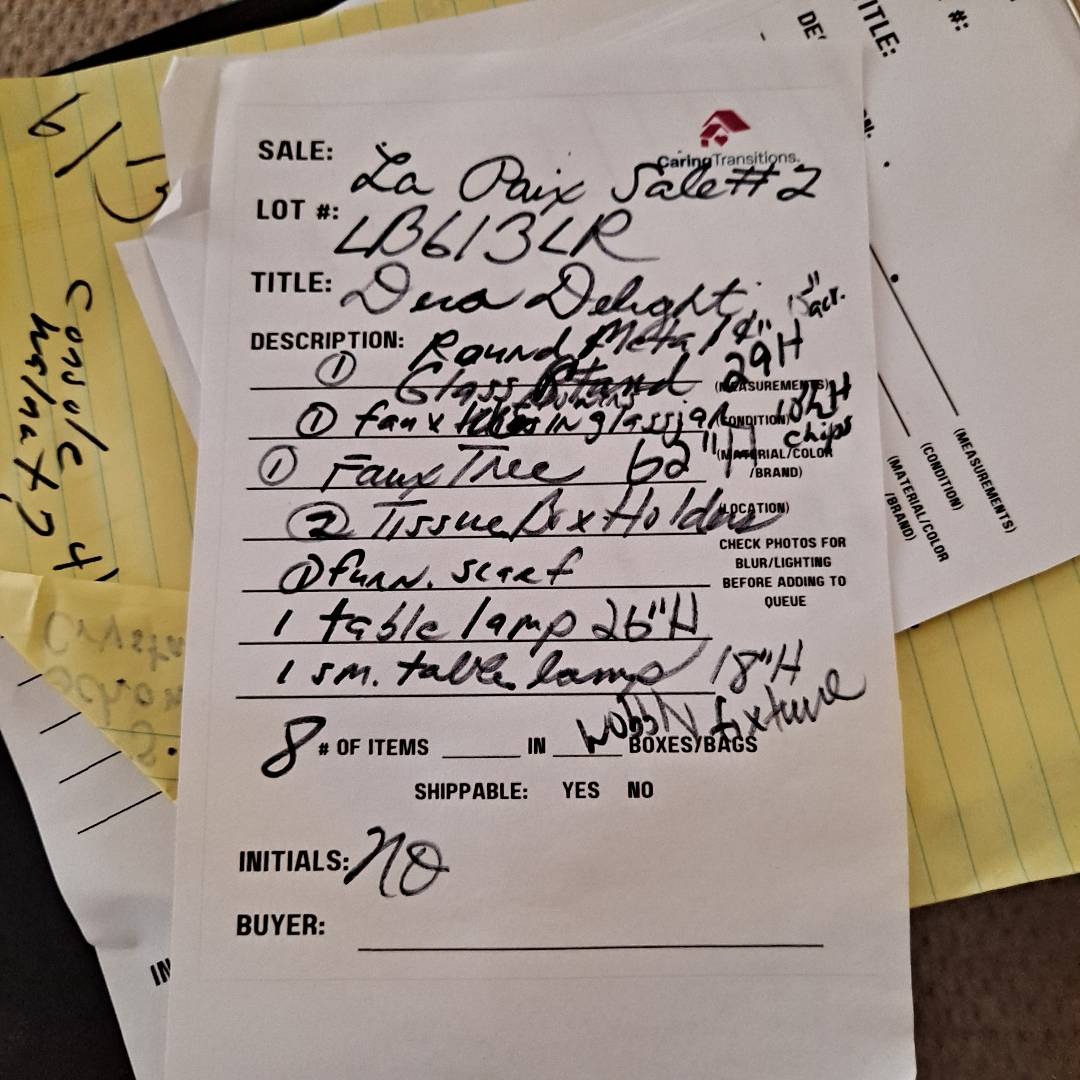 CaringTransitions.
SALE: La Paix Sale #2
LOT #: LB613LR
TITLE: Deco Delight 15" acr.
DESCRIPTION: ① Round Metal 29H
Glass Stand (MEASUREMENTS)
① faux flowers IN glass jar 10½H (CONDITION) chips
① Faux Tree 62"H (MATERIAL/COLOR
/BRAND)
② Tissue Box Holders (LOCATION)
CHECK PHOTOS FOR
BLUR/LIGHTING
BEFORE ADDING TO
QUEUE
① furn. scarf
1 table lamp 26"H
1 sm. table lamp 18"H
wobbly fixture
8 # OF ITEMS IN BOXES/BAGS
SHIPPABLE: YES NO
INITIALS: NO
BUYER:
TITLE:
#:
(MEASUREMENTS)
(CONDITION)
(MATERIAL/COLOR
/BRAND)
Console
walnut?
IN